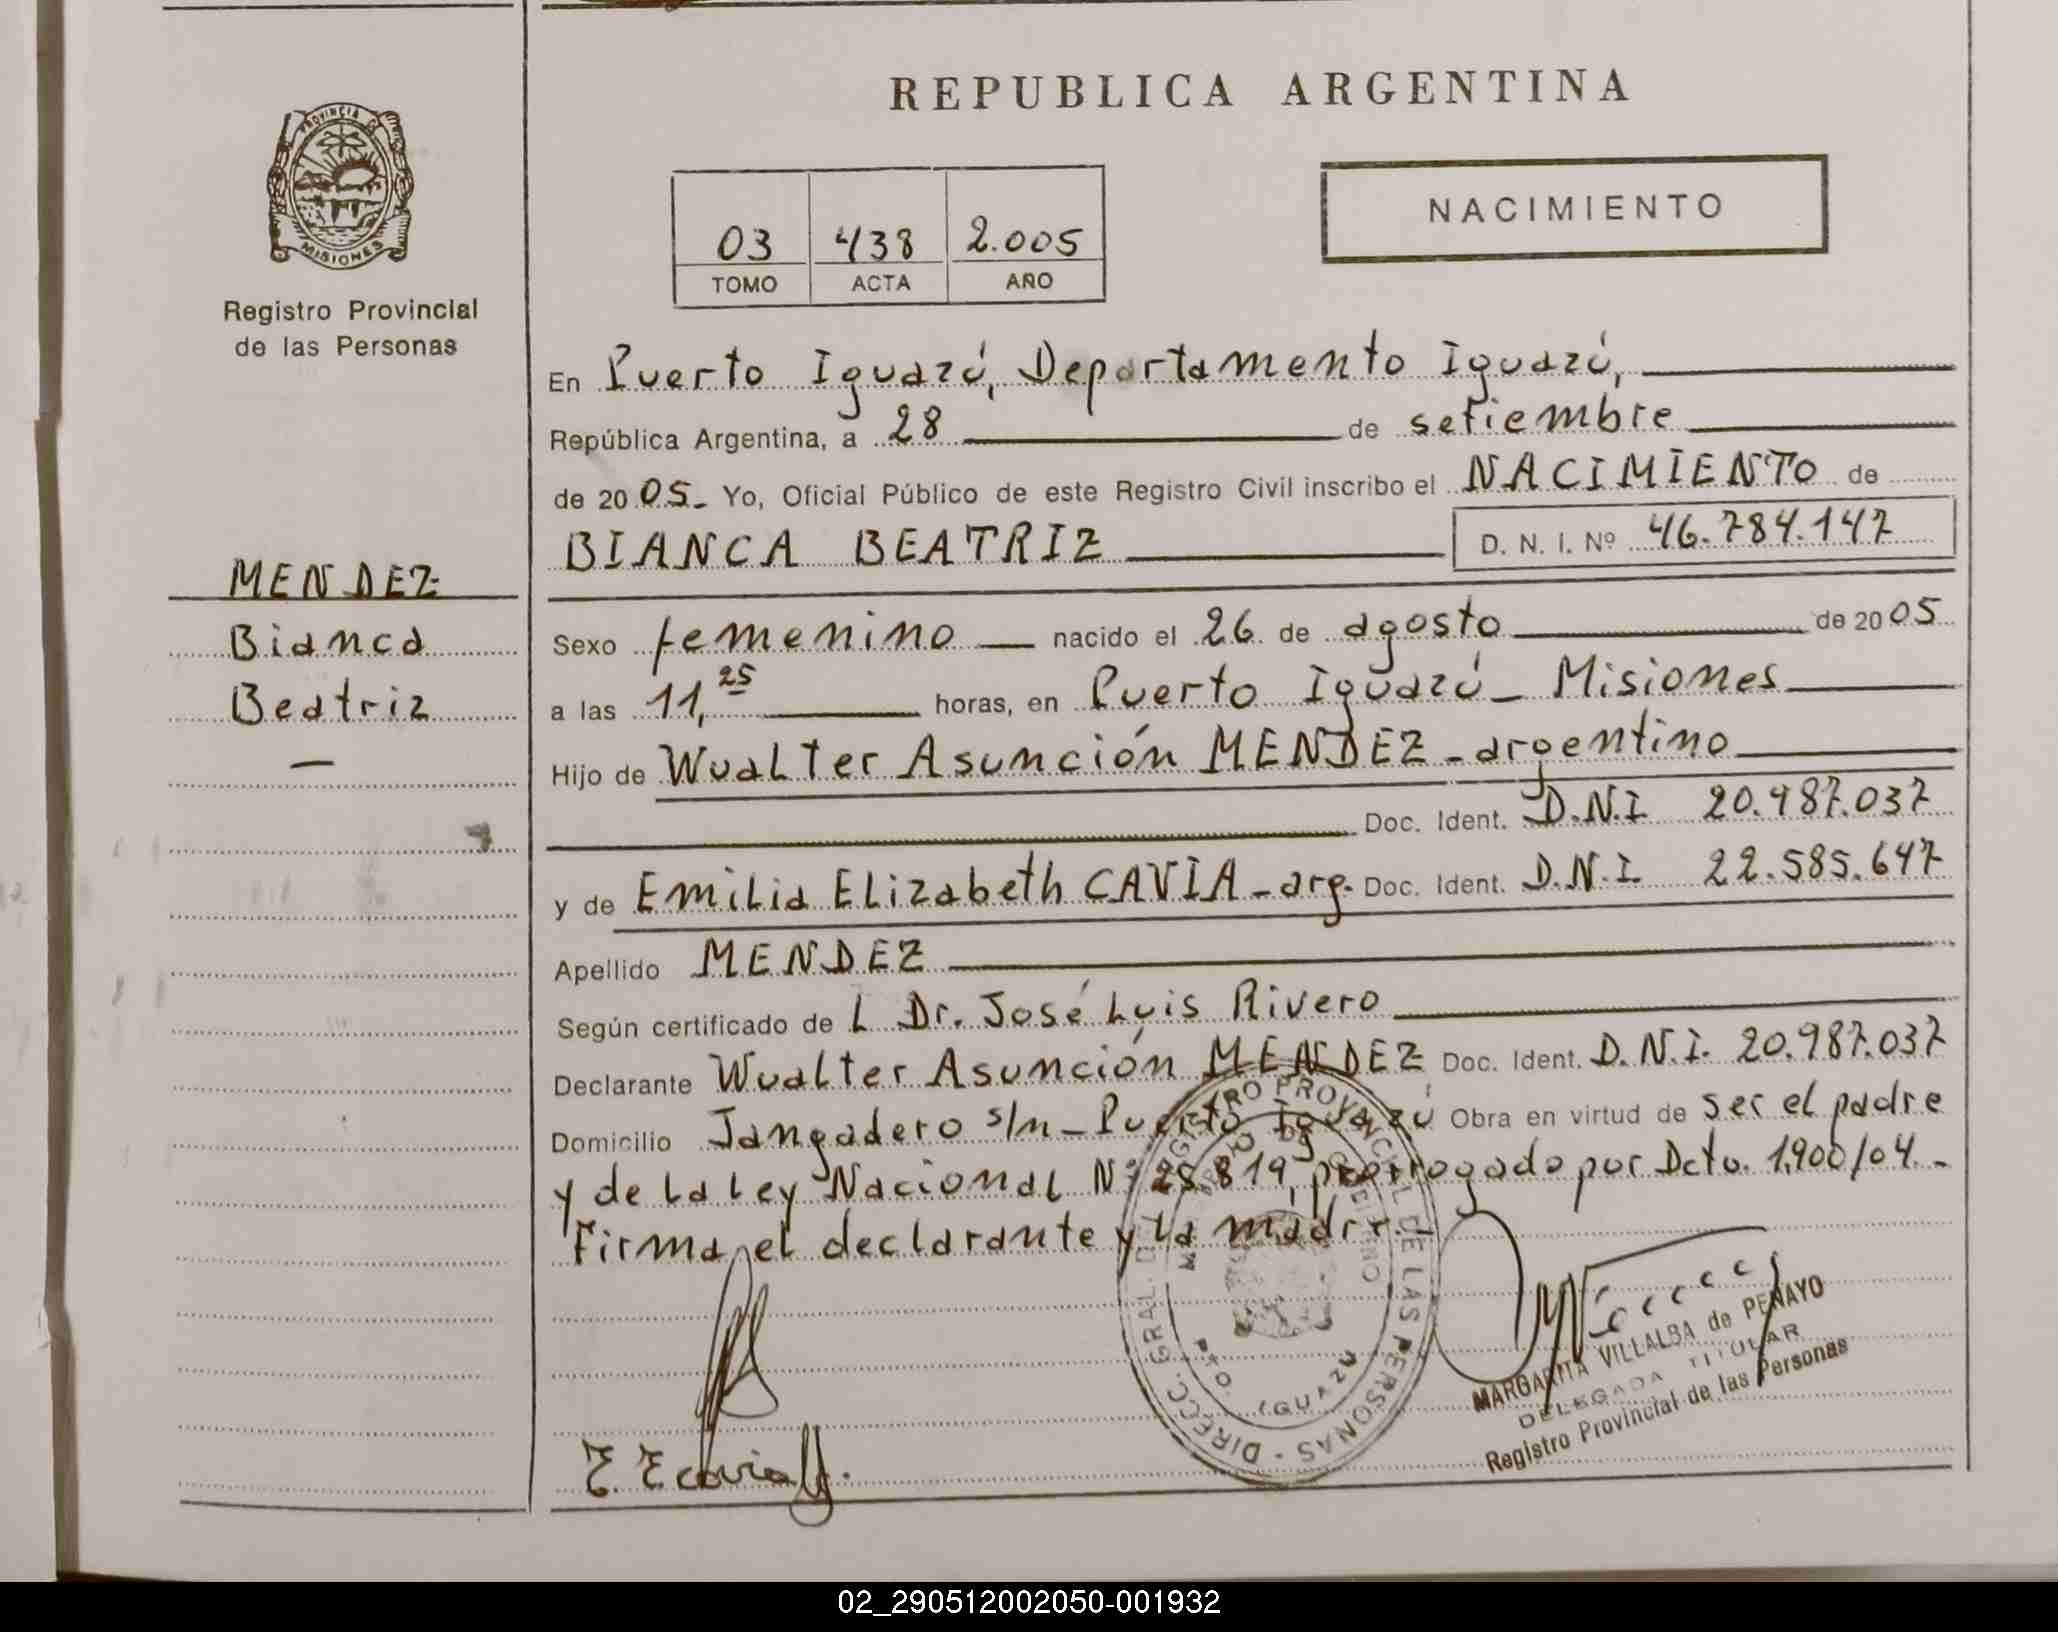 REPUBLICA ARGENTINA
PROVINCIA DE
MISIONES
Registro Provincial
de las Personas
NACIMIENTO
03 438 2.005
TOMO ACTA AÑO
MENDEZ
Bianca
Beatriz
—
En Puerto Iguazú, Departamento Iguazú,
República Argentina, a 28 de setiembre
de 20 05- Yo, Oficial Público de este Registro Civil inscribo el NACIMIENTO de
BIANCA BEATRIZ D. N. I. Nº 46.784.147
Sexo femenino nacido el 26 de agosto de 20 05
a las 11,25 horas, en Puerto Iguazú - Misiones
Hijo de Wualter Asunción MENDEZ - argentino
Doc. Ident. D.N.I 20.987.037
y de Emilia Elizabeth CAVIA - arg. Doc. Ident. D.N.I. 22.585.647
Apellido MENDEZ
Según certificado de l Dr. José Luis Rivero
Declarante Wualter Asunción MENDEZ Doc. Ident. D.N.I. 20.987.037
Domicilio Jangadero s/n - Puerto Iguazú Obra en virtud de ser el padre
y de la ley Nacional Nº 25.819, prorrogado por Dcto. 1.900/04.-
Firman el declarante y la madre.
E. E cavia
DIRECC. GRAL. DEL REGISTRO PROVINCIAL DE LAS PERSONAS
PTO. IGUAZU
MARGARITA VILLALBA de PENAYO
DELEGADA TITULAR
Registro Provincial de las Personas
02_290512002050-001932